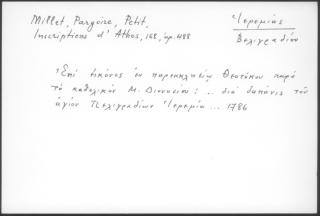 Millet, Pargoire, Petit,
Inscriptions d'Athos, 168, ἀρ. 488
Ἱερεμίας
Βελιγραδίου
Ἐπί εἰκόνος ἐν παρεκκλησίῳ Θεοτόκου παρά
τό καθολικόν Μ. Διονυσίου: .. διά δαπάνης τοῦ
ἁγίου Πελιγραδίων Ἱερεμία ... 1786